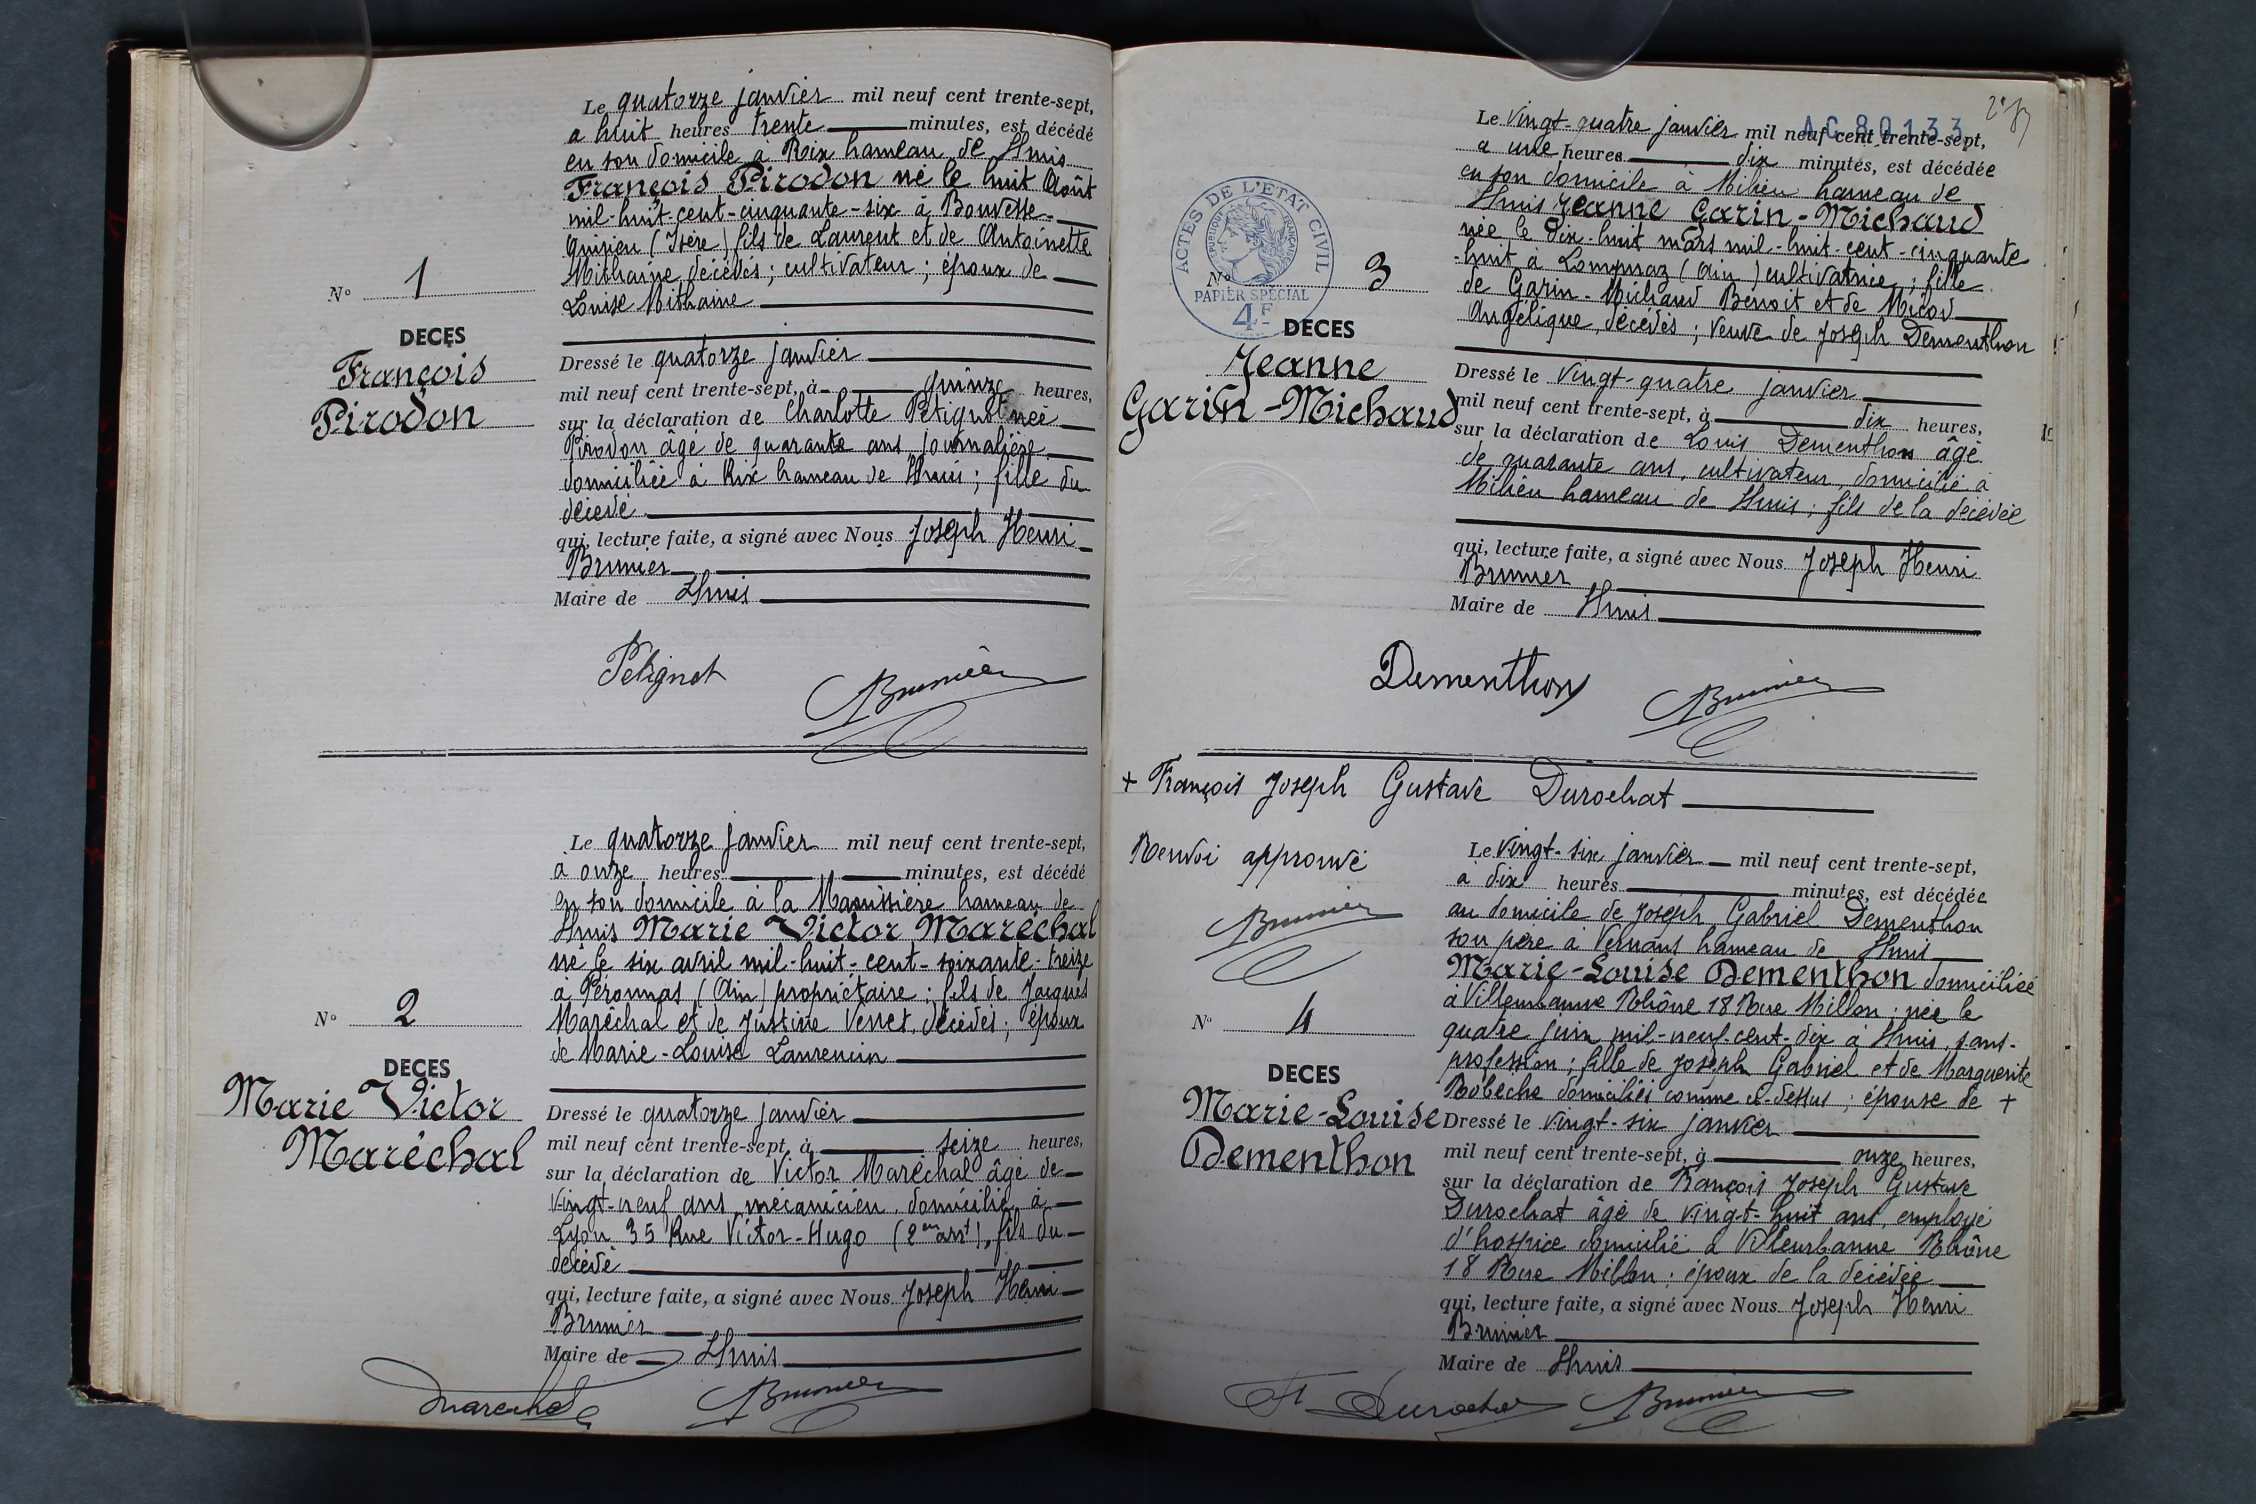 Le quatorze janvier mil neuf cent trente-sept,
a huit heures trente minutes, est décédé
en son domicile à Rix hameau de Lhuis
François Pirodon né le huit Août
mil-huit-cent-cinquante-six à Bouvesse-
Quirieu (Isère) fils de Laurent et de Antoinette
Mithaine décédés; cultivateur; époux de
Louise Mithaine
No 1
DECES
François
Pirodon
Dressé le quatorze janvier
mil neuf cent trente-sept, à quinze heures,
sur la déclaration de Charlotte Petignet née
Pirodon âgé de quarante ans journalière
domiciliée à Rix hameau de Lhuis; fille du
décédé
qui, lecture faite, a signé avec Nous Joseph Henri
Brunier
Maire de Lhuis
Petignet
Brunier
Le quatorze janvier mil neuf cent trente-sept,
à onze heures minutes, est décédé
en son domicile à la hameau de
Lhuis Marie Victor Maréchal
né le six avril mil-huit-cent-soixante-treize
à Péronnas (Ain) propriétaire; fils de Jacques
Maréchal et de Justine Verret, décédés; époux
de Marie-Louise Laurencin
No 2
DECES
Marie Victor
Maréchal
Dressé le quatorze janvier
mil neuf cent trente-sept, à seize heures,
sur la déclaration de Victor Maréchal âgé de
vingt-neuf ans mécanicien, domicilié à
Lyon 35 Rue Victor-Hugo (2em arrt), fils du
décédé
qui, lecture faite, a signé avec Nous Joseph Henri
Brunier
Maire de Lhuis
Marechal
Brunier
AC 80133
Le vingt-quatre janvier mil neuf cent trente-sept,
a une heures dix minutes, est décédée
en son domicile à Milieu hameau de
Lhuis Jeanne Garin-Michaud
née le dix-huit mars mil-huit-cent-cinquante
-huit à Lompnaz (Ain) cultivatrice; fille
de Garin-Michaud Benoit et de Micod
Angélique, décédés; veuve de Joseph Dementhon
ACTES DE L'ETAT CIVIL
REPUBLIQUE FRANÇAISE
PAPIER SPECIAL
4F
No 3
DECES
Jeanne
Garin-Michaud
Dressé le vingt-quatre janvier
mil neuf cent trente-sept, à dix heures,
sur la déclaration de Louis Dementhon âgé
de quarante ans, cultivateur, domicilié à
Milieu hameau de Lhuis; fils de la décédée
qui, lecture faite, a signé avec Nous Joseph Henri
Brunier
Maire de Lhuis
Dementhon
Brunier
+ François Joseph Gustave Durochat
Renvoi approuvé
Brunier
Le vingt-six janvier mil neuf cent trente-sept,
à dix heures minutes, est décédée
au domicile de Joseph Gabriel Dementhon
son père à Vernans hameau de Lhuis
Marie-Louise Dementhon domiciliée
à Villeurbanne Rhône 18 Rue Millon; née le
quatre juin mil-neuf-cent-dix à Lhuis, sans-
profession; fille de Joseph Gabriel et de Marguerite
Robèche domiciliés comme ci-dessus; épouse de +
No 4
DECES
Marie-Louise
Dementhon
Dressé le vingt-six janvier
mil neuf cent trente-sept, à onze heures,
sur la déclaration de François Joseph Gustave
Durochat âgé de vingt-huit ans, employé
d'hospice domicilié à Villeurbanne Rhône
18 Rue Millon; époux de la décédée
qui, lecture faite, a signé avec Nous Joseph Henri
Brunier
Maire de Lhuis
Durochat
Brunier